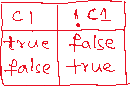 C1 !C1
true false
false true